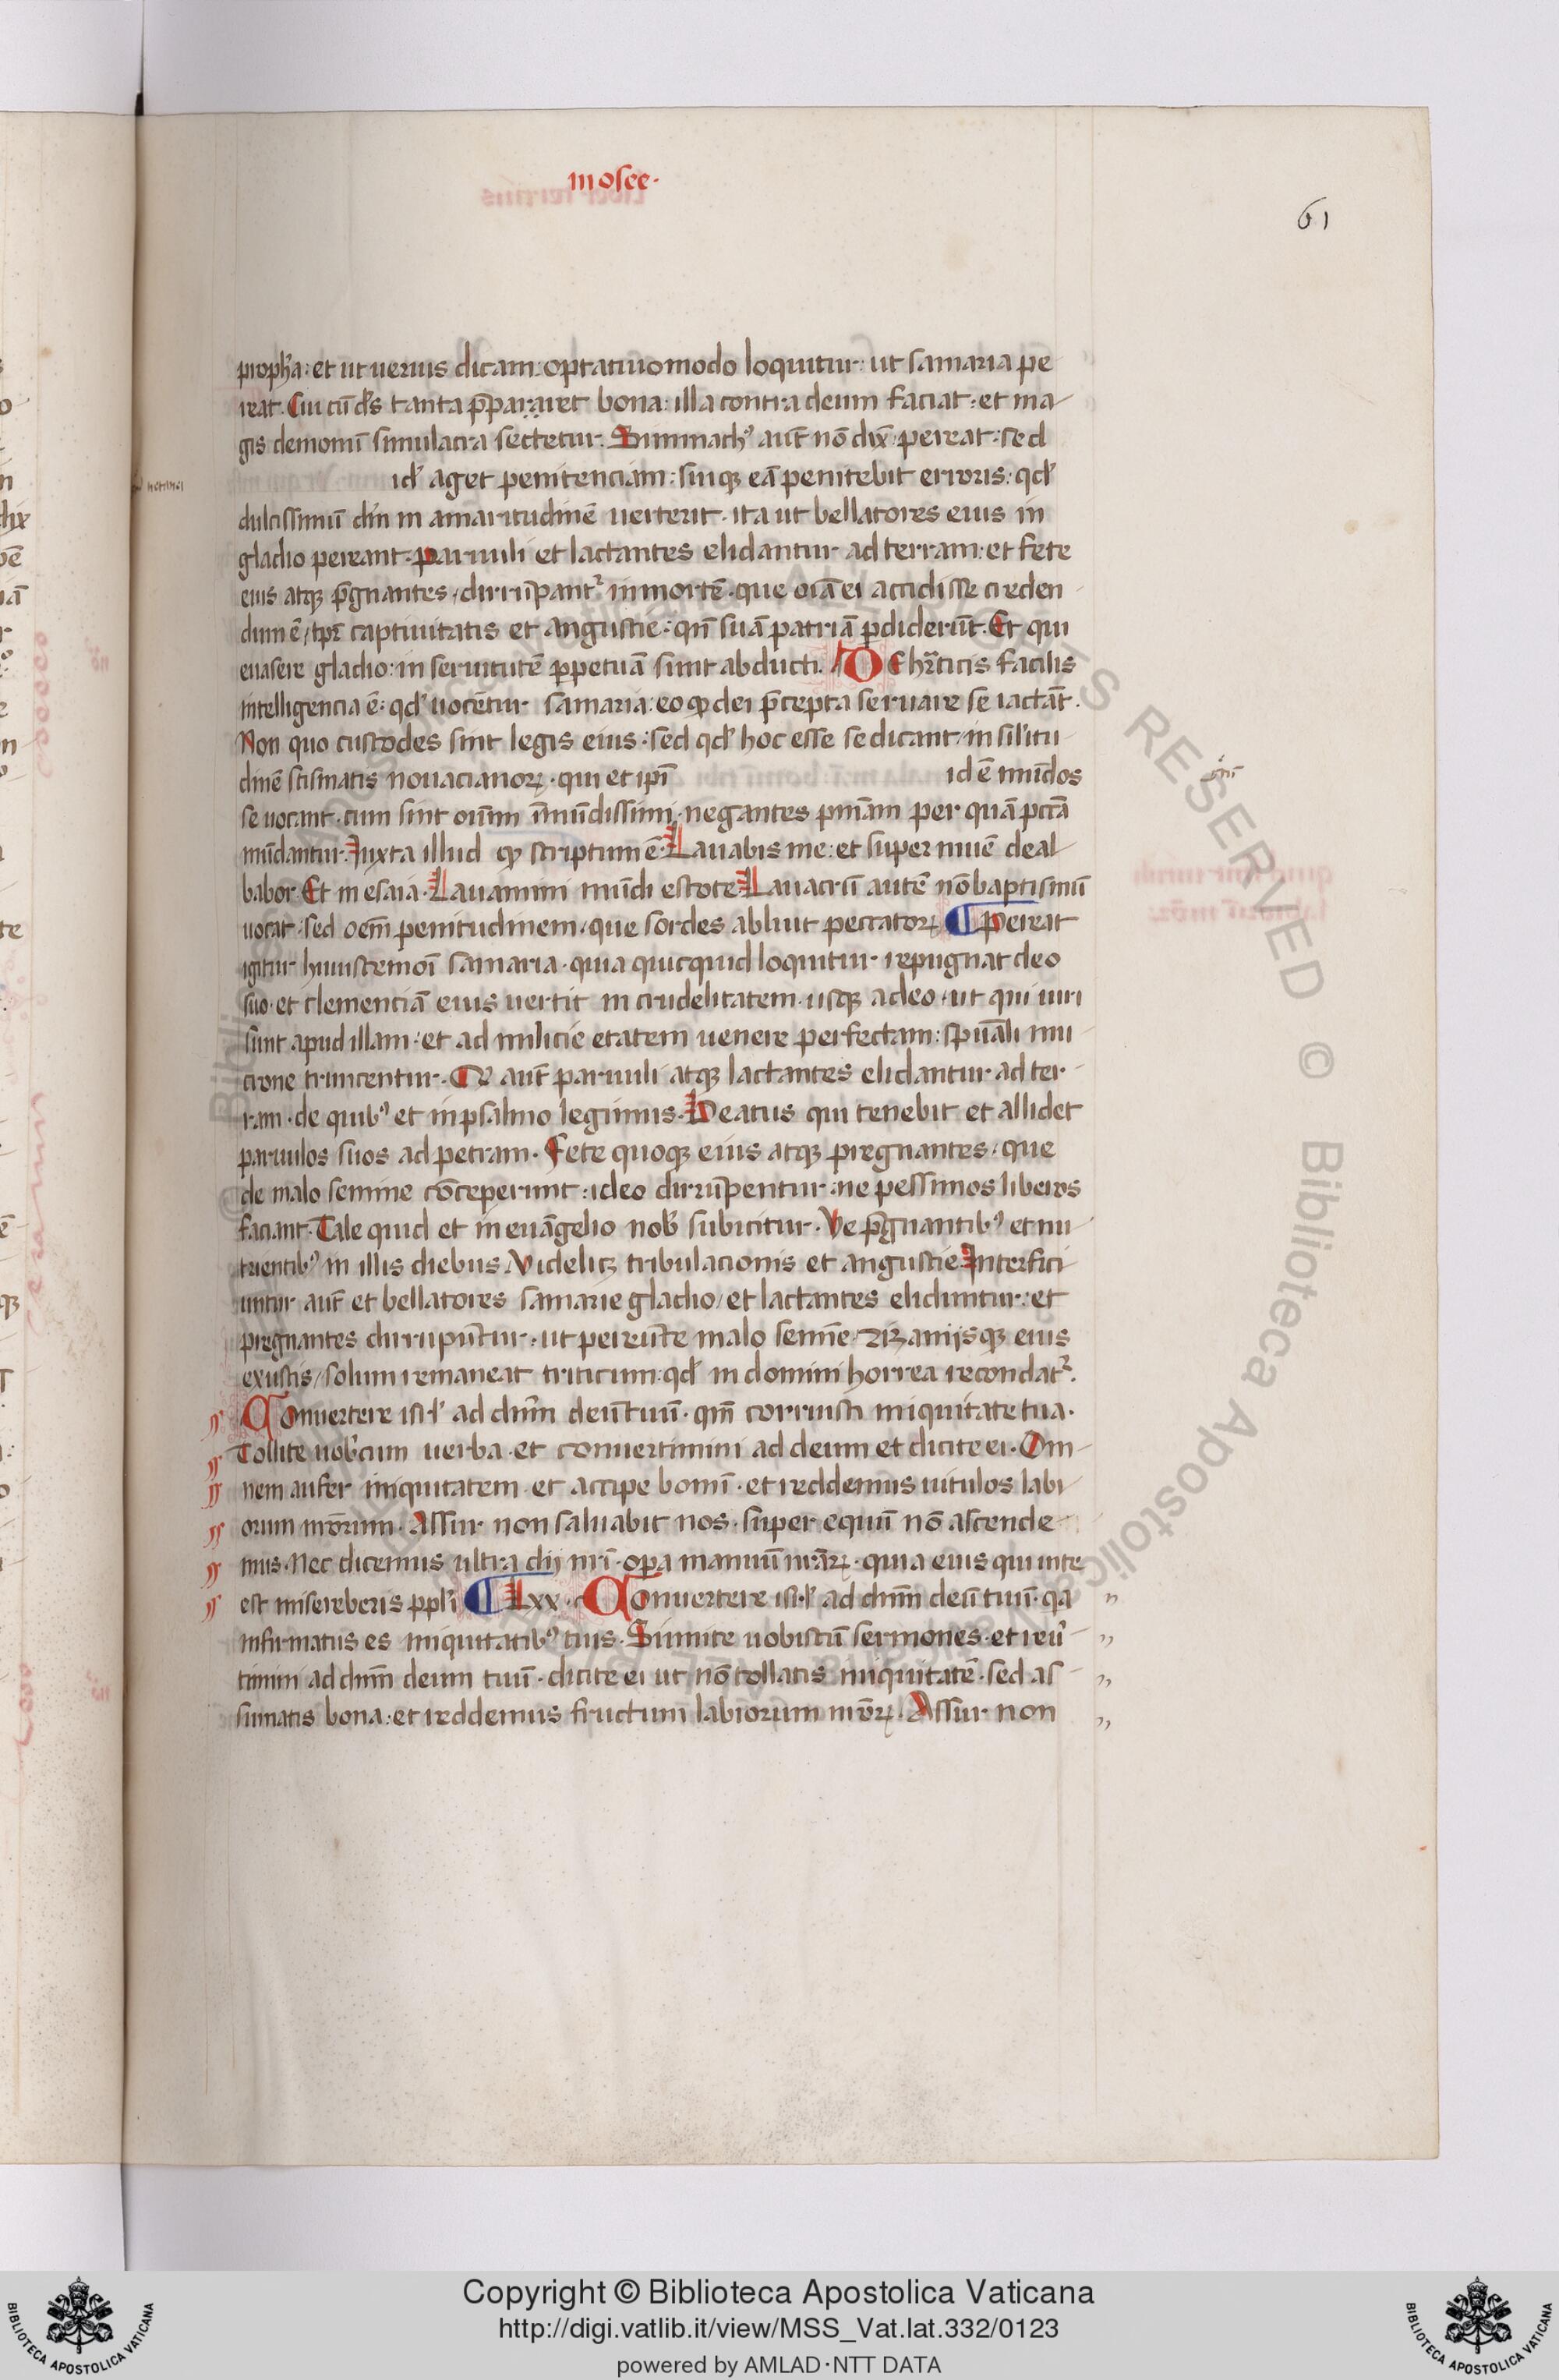 in osee·
61
proph̄a: et ut uerius dicam: optatiuo modo loquitur: ut samaria pe
reat. Cui cū d̄s tanta p̄pararet bona: illa contra deum faciat: et ma
gis demonū simulacra sectetur. Simmachꝰ aut̄ nō dix̄ pereat: sed
id̄ aget penitenciam: siuꝙ eā penitebit erroris: qd̄
dulcissimū dn̄m in amaritudinē uerterit. ita ut bellatores eius in
gladio pereant. paruuli et lactantes elidantur ad terram: et fete
eius atqꝫ p̄gnantes, dirrūpant᷑ in mortē. que oīa ei accidisse creden
dum ē, tp̄r captiuitatis et angustie: qn̄ suā patriā ꝑdiderūt. Et qui
euasere gladio: in seruitutē ꝑpetuā sunt abducti. De hr̄ticis facilis
intelligencia ē: qd̄ uocētur samaria: eo ꝙ dei p̄cepta seruare se iactāt.
Non quo custodes sint legis eius: sed qd̄ hoc esse se dicant, in sil̄itu
dinē scismatis nouacianoꝝ. qui et ip̄i id ē mūdos
se uocant. cum sint oīum īmūdissimi, negantes pn̄iam per quā pctā
mūdantur. Juxta illud ꝙ scriptum ē. Lauabis me: et super niuē deal
babor. Et in esaia. Lauamini mūdi estote. Lauacrū autē nō baptismū
uocat. sed oēm penitudinem, que sordes abluit peccatoꝝ ¶ Pereat
igitur huiuscemōi samaria. quia quicquid loquitur repugnat deo
suo. et clementiā eius uertit in crudelitatem. usqꝫ adeo, ut qui uiri
sunt apud illam: et ad milicie etatem uenere perfectam: spūali mu
crone truncentur. Qi aut̄ paruuli atqꝫ lactantes elidantur ad ter
ram. de quibꝰ et in psalmo legimus. Beatus qui tenebit et allidet
paruulos suos ad petram. Fete quoqꝫ eius atqꝫ pregnantes, que
de malo semine cōceperunt: ideo dirrūpentur: ne pessimos liberos
faciant. Tale quid et in euāgelio nob̄ subicitur. Ve p̄gnantibꝰ et nu
trientibꝰ in illis diebus. Videlicꝫ tribulacionis et angustie. Interfici
untur aut̄ et bellatores samarie gladio, et lactantes eliduntur: et
pregnantes dirrupūtur. ut pereūte malo semīe, zizanijsqꝫ eius
exustis, solum remaneat triticum: qd̄ in domini horrea recondat᷑.
Conuertere isr̄l ad dn̄m deū tuū. qm̄ corruisti iniquitate tua.
Tollite uob̄cum uerba. et conuertimini ad deum et dicite ei. Om
nem aufer iniquitatem et accipe bonū. et reddemus uitulos labi
orum nr̄orum. Assur non saluabit nos. super equū nō ascende
mus. Nec dicemus ultra dij nr̄i. oꝑa manuū nr̄aꝝ. quia eius qui in te
est misereberis ppl̄i ¶ Lxx. Conuertere isr̄l ad dn̄m deū tuū. qa
infirmatus es iniquitatibꝰ tuis. Sumite uobiscū sermones. et reū
timini ad dn̄m deum tuū. dicite ei ut nō tollatis iniquitatē. sed as
sumatis bona: et reddemus fructum labiorum nr̄oꝝ. Assur non
Copyright © Biblioteca Apostolica Vaticana
http://digi.vatlib.it/view/MSS_Vat.lat.332/0123
powered by AMLAD·NTT DATA
BIBLIOTECA APOSTOLICA VATICANA
BIBLIOTECA APOSTOLICA VATICANA